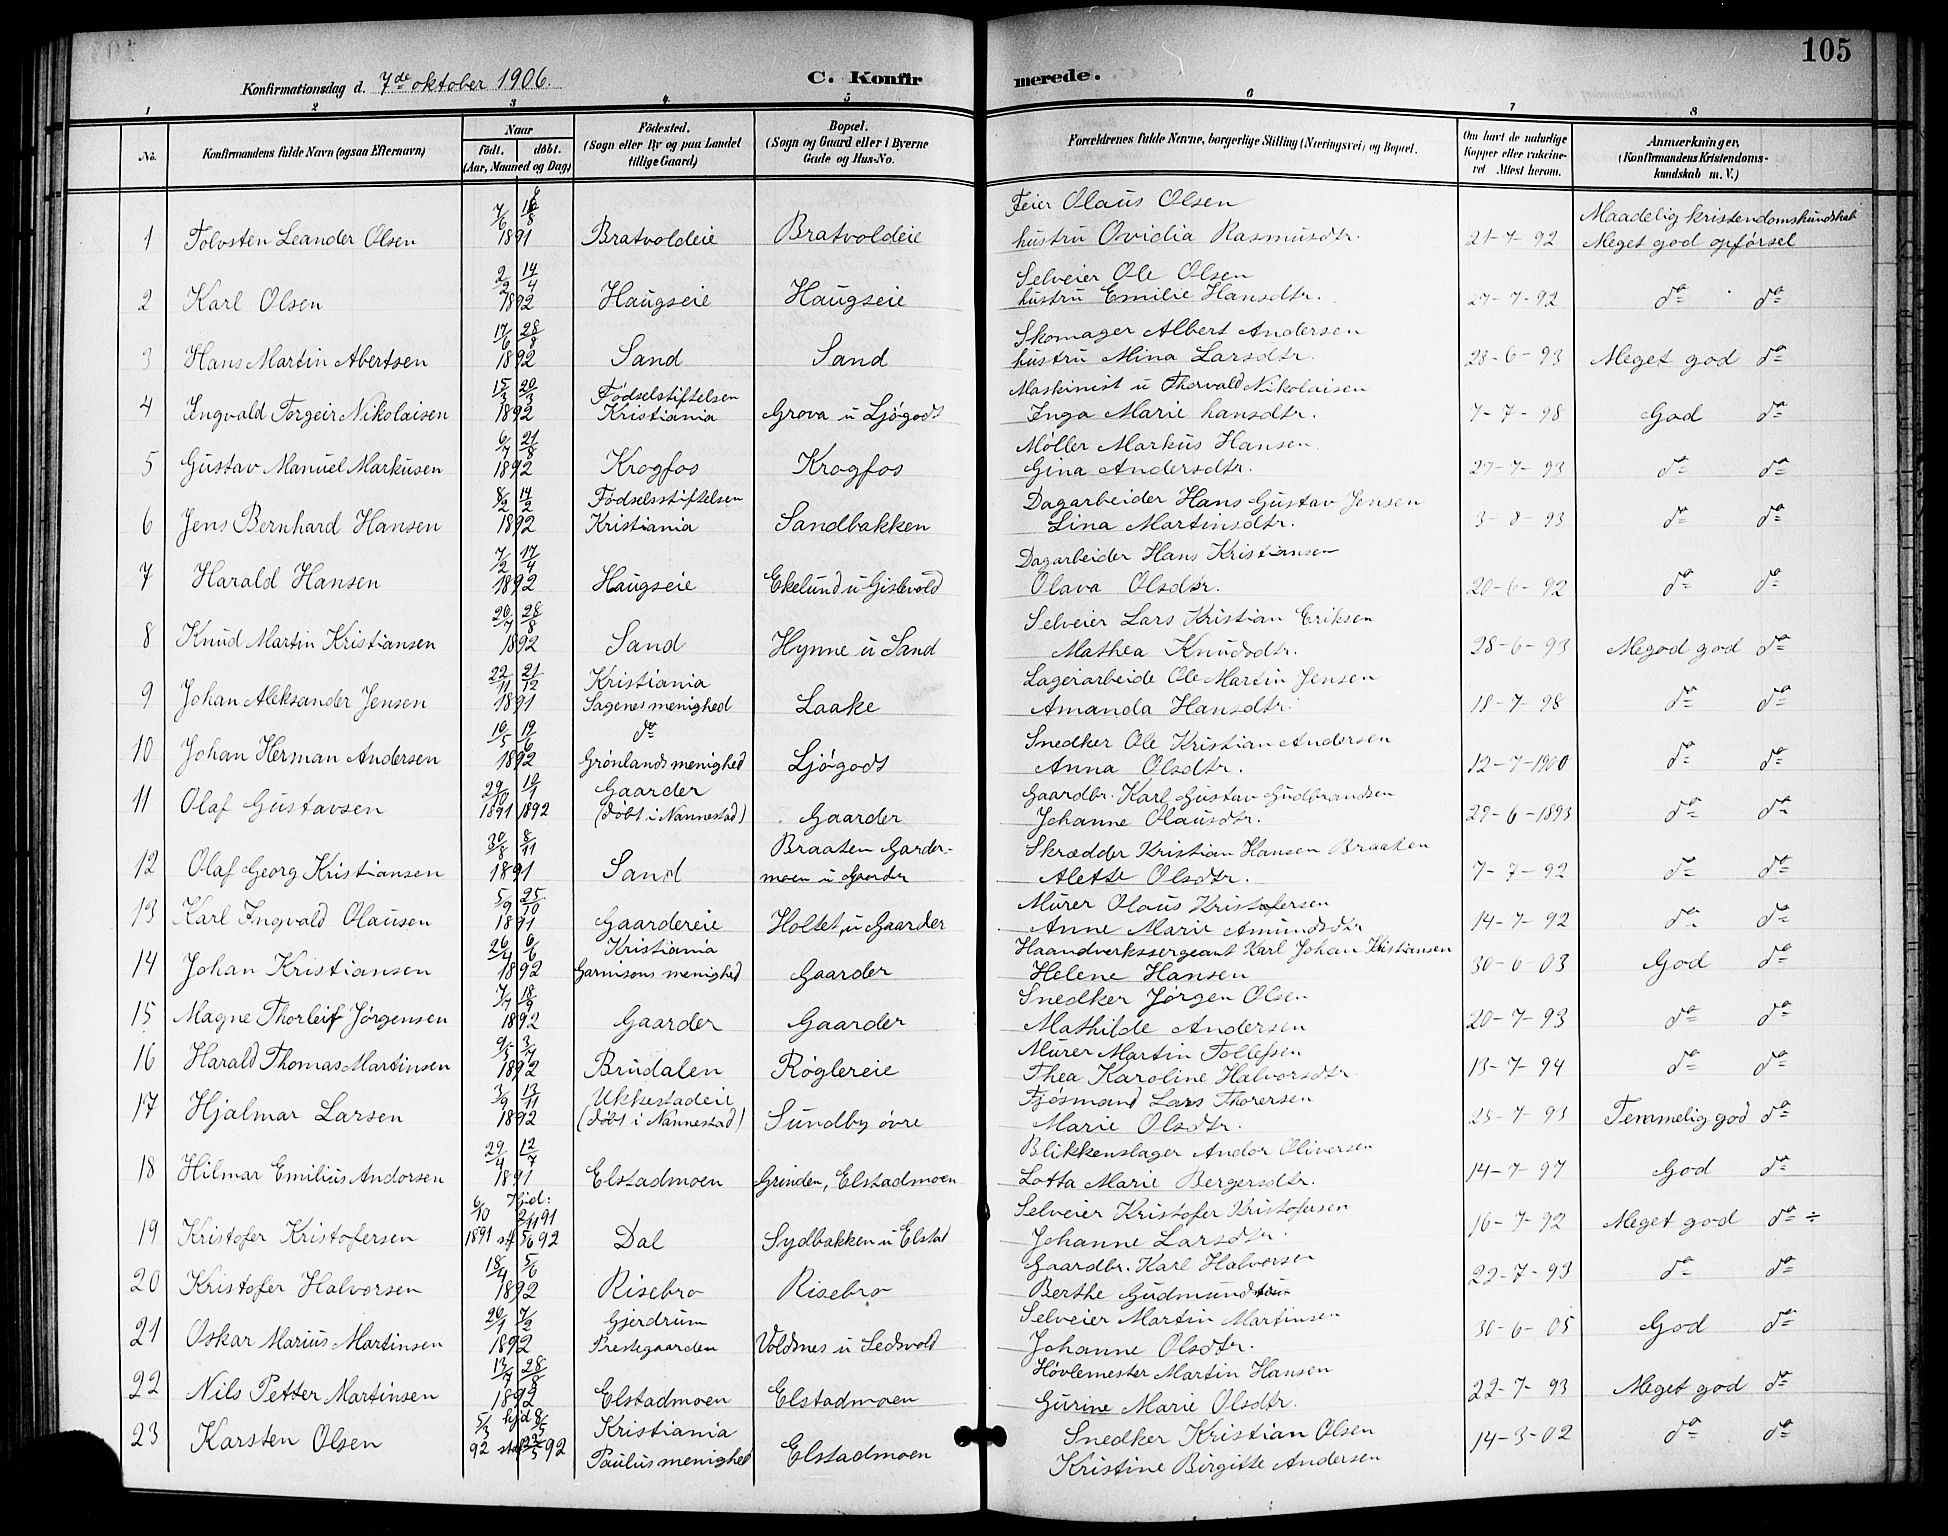 105
Konfirmationsdag d. 7de oktober 1906.
C. Konfirmerede.
1 2 3 4 5 6 7 8
No.
Konfirmandens fulde Navn (ogsaa Efternavn)
Naar
født. døbt.
(Aar, Maaned og Dag)
Fødested.
(Sogn eller By og paa Landet
tillige Gaard)
Bopæl.
(Sogn og Gaard eller i Byerne
Gade og Hus-No.
Forældrenes fulde Navne, borgerlige Stilling (Næringsvei) og Bopæl.
Om havt de naturlige
Kopper eller vakcine-
ret Attest herom.
Anmærkninger,
(Konfirmandens Kristendoms-
kundskab m. V.)
7/6 8 Feier Olaus Olsen Maadelig kristendomskundskab
1 Tolvsten Leander Olsen 1891 Bratvoldeie Bratvoldeie hustru Ovidia Rasmusdtr. 21-7-92 Meget god opførsel
2/2 14/4 Selveier Ole Olsen
2 Karl Olsen 1892 Haugseie Haugseie hustru Emilie Hansdtr. 27-7-92 do do
17/6 28/8 Skomager Albert Andersen
3 Hans Martin Abertsen 1892 Sand Sand hustru Mina Larsdtr. 28-6-93 Meget god do
15/3 20/3 Fødselstiftelsen Maskinist u Thorvald Nikolaisen
4 Ingvald Torgeir Nikolaisen 1892 Kristiania Grova u Ljøgodt Inga Marie hansdtr. 7-7-98 God do
6/7 21/8 Møller Markus Hansen
5 Gustav Manuel Markusen 1892 Krogfos Krogfos Gina Andersdtr. 27-7-93 do do
8/2 14/2 Fødselsstiftelsen Dagarbeider Hans Gustav Jensen
6 Jens Bernhard Hansen 1892 Kristiania Sandbakken Lina Martinsdtr. 3-8-93 do do
7/2 17/4 Dagarbeider Hans Kristiansen
7 Harald Hansen 1892 Haugseie Ekelund u Gislevold Olava Olsdtr. 20-6-92 do do
20/7 28/8 Selveier Lars Kristian Eriksen
8 Knud Martin Kristiansen 1892 Sand Hynne u Sand Mathea Knudsdtr. 28-6-93 Megod god do
22/11 21/12 Kristiania Lagerarbeide Ole Martin Jensen
9 Johan Aleksander Jensen 1891 Sagenes menighed Laake Amanda Hansdtr. 18-7-98 do do
16/5 19/6 do Snedker Ole Kristian Andersen
10 Johan Herman Andersen 1892 Grønlands menighed Ljøgodt Anna Olsdtr. 12-7-1900 do do
29/10 10/1 Gaarder Gaardbr. Karl Gustav Gudbrandsen
11 Olaf Gustavsen 1891 1892 (døbt i Nannestad) Gaarder Johanne Olausdtr. 29-6-1893 do do
30/8 8/11 Braaten Garder- Skrædder Kristian Hansen Braaten
12 Olaf Georg Kristiansen 1891 Sand moen u Gaarder Alette Olsdtr. 7-7-92 do do
5/9 25/10 Murer Olaus Kristofersen
13 Karl Ingvald Olausen 1891 Gaardereie Holtet, u Gaarder Anne Marie Amundsdtr 14-7-92 do do
26/4 6/6 Kristiania Haandverkssergeant Karl Johan Kristiansen
14 Johan Kristiansen 1892 Garnisons menighed Gaarder Helene Hansen 30-6-03 God do
7/7 18/9 Snedker Jørgen Olsen
15 Magne Thorleif Jørgensen 1892 Gaarder Gaarder Mathilde Andersen 20-7-93 do do
9/5 3/7 Murer Martin Tollefsen
16 Harald Thomas Martinsen 1892 Brudalen Røglereie Thea Karoline Halvorsdtr 13-7-94 do do
3/9 13/11 Ukkustadeie Fjøsmand Lars Thorersen
17 Hjalmar Larsen 1892 (døbt i Nannestad) Sundby øvre Marie Olsdtr. 25-7-93 Temmelig god do
29/4 12/7 Blikkenslager Andor Oliversen
18 Hilmar Emilius Andorsen 1891 Elstadmoen Grinden, Elstadmoen Lotta Marie Bergersdtr. 14-7-97 God do
6/10 Hjd: 2/11 91 Selveier Kristofer Kristofersen
19 Kristofer Kristofersen 1891 stf 5/6 92 Dal Sydbakken u Elstad Johanne Larsdtr. 16-7-92 Meget god do ÷
18/4 5/6 Gaardbr. Karl Halvorsen
20 Kristofer Halvorsen 1892 Risebro Risebro Berthe Gudmundsdtr 22-7-93 do do
26/1 7/2 Gjerdrum Selveier Martin Martinsen
21 Oskar Marius Martinsen 1892 Prestegaarden Voldsnes u Ledsvold Johanne Olsdtr. 30-6-05 God do
13/7 28/8 Høvlemester Martin Hansen
22 Nils Petter Martinsen 1892 Elstadmoen Elstadmoen Gurine Marie Olsdtr. 22-7-93 Meget god do
5/3 hjd 8/5 Kristiania Snedker Kristian Olsen
23 Karsten Olsen 92 92 Paulus menighed Elstadmoen Kristine Birgitte Andersen 14-3-02 do do